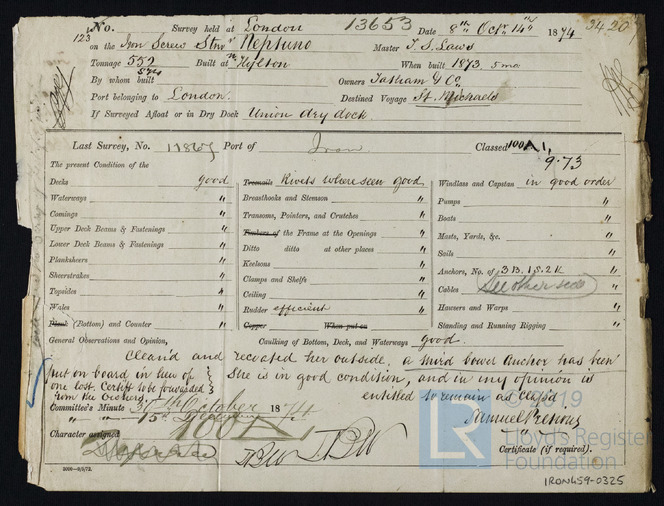 No. Survey held at London 13653 Date 8th Octr 14th 1874 3420
123 on the Iron Screw Stmr Neptuno Master T. S. Laws
Tonnage 552 Built at Hylton When built 1873. 5 mo
By whom built Owners Tatham & Co
Port belonging to London. Destined Voyage St. Michaels
If Surveyed Afloat or in Dry Dock Union dry dock.
Last Survey, No. 11865 Port of Iron Classed 100A1,
9.73
The present Condition of the
Decks good Treenails Rivets where seen good Windlass and Capstan in good order
Waterways " Breasthooks and Stemson " Pumps "
Comings " Transoms, Pointers, and Crutches " Boats "
Upper Deck Beams & Fastenings " Timbers of the Frame at the Openings " Masts, Yards, &c. "
Lower Deck Beams & Fastenings " Ditto ditto at other places " Sails "
Planksheers " Keelsons " Anchors, No. of 3B. 1S. 2K "
Sheerstrakes " Clamps and Shelfs " Cables See other side
Topsides " Ceiling " Hawsers and Warps "
Wales " Rudder efficient Standing and Running Rigging "
Plank (Bottom) and Counter " Copper When put on
General Observations and Opinion, Caulking of Bottom, Deck, and Waterways good.
Clean'd and recoated her outside. a third bower anchor has been
put on board in lieu of She is in good condition, and in my opinion is
one lost. Certift to be forwarded entitled to remain as class'd
from the Owners.
Committee's Minute 30th October 1874
" " 15th
Character assigned 100A1
Certificate (if required).
2000-9/9/72.
© 2019
LR Lloyd's Register
Foundation
IRON459-0325